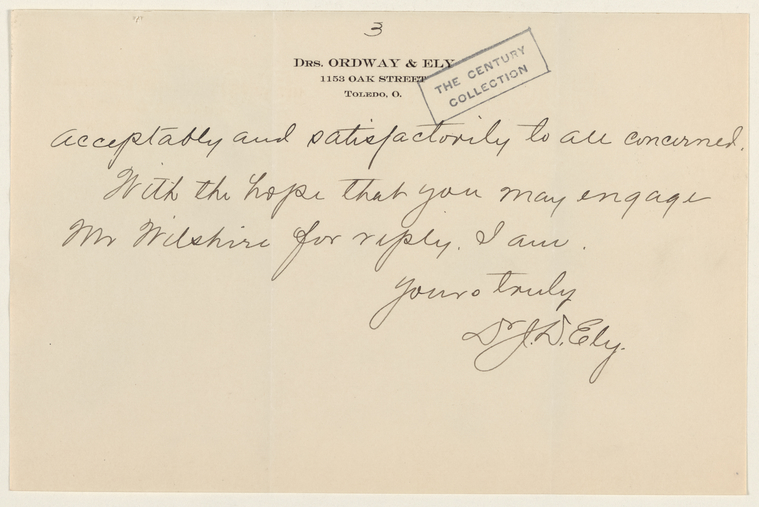 3
Drs. ORDWAY & ELY
1153 OAK STREET
TOLEDO, O.
THE CENTURY
COLLECTION
acceptably and satisfactorily to all concerned.
With the hope that you may engage
Mr Wilshire for reply. I am.
Yours truly
Dr J. D. Ely.